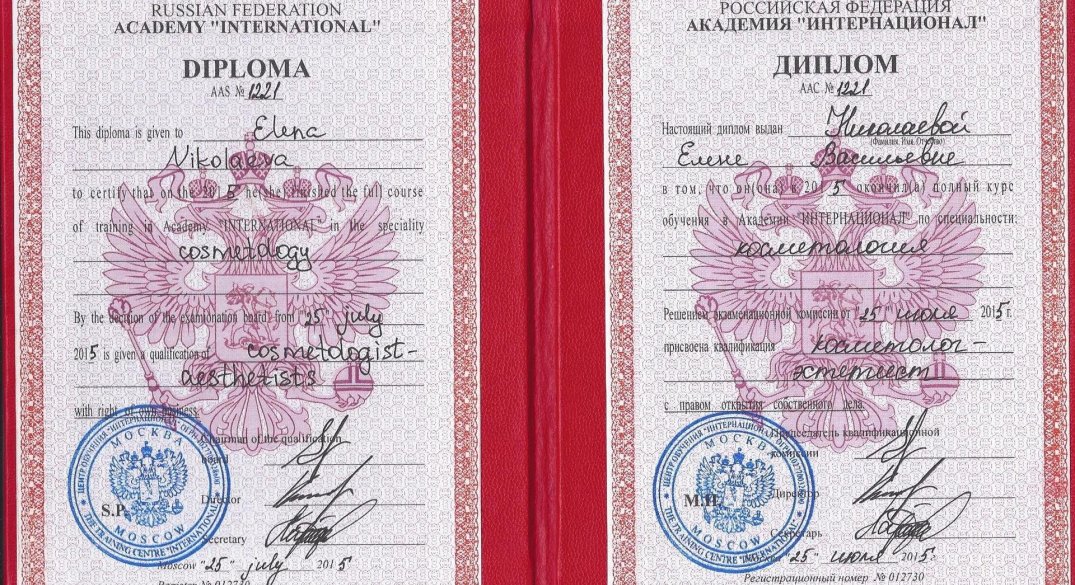 RUSSIAN FEDERATION
ACADEMY "INTERNATIONAL"
DIPLOMA
AAS № 1221
This diploma is given to Elena
Nikolaeva
to certify that on the 2015 he(she) finished the full course
of training in Academy "INTERNATIONAL" in the speciality
cosmetology
By the decision of the examinationa board from "25" july
2015 is given a qualification of cosmetologist-
aesthetists
with right of own business.
Chairman of the qualification
board
Director
S.P.
Secretary
Moscow "25" july 2015
Register № 012730
МОСКВА
MOSCOW
THE TRAINING CENTRE "INTERNATIONAL"
РОССИЙСКАЯ ФЕДЕРАЦИЯ
АКАДЕМИЯ "ИНТЕРНАЦИОНАЛ"
ДИПЛОМ
ААС № 1221
Настоящий диплом выдан Николаевой
(Фамилия, Имя, Отчество)
Елене Васильевне
в том, что он(она) в 2015 окончил(а) полный курс
обучения в Академии "ИНТЕРНАЦИОНАЛ" по специальности:
косметология
Решением экзаменационной комиссии от "25" июля 2015 г.
присвоена квалификация косметолог-
эстетист
с правом открытия собственного дела.
Председатель квалификационной
комиссии
Директор
М.П.
Секретарь
"25" июля 2015
Регистрационный номер № 012730
МОСКВА
MOSCOW
THE TRAINING CENTRE "INTERNATIONAL"